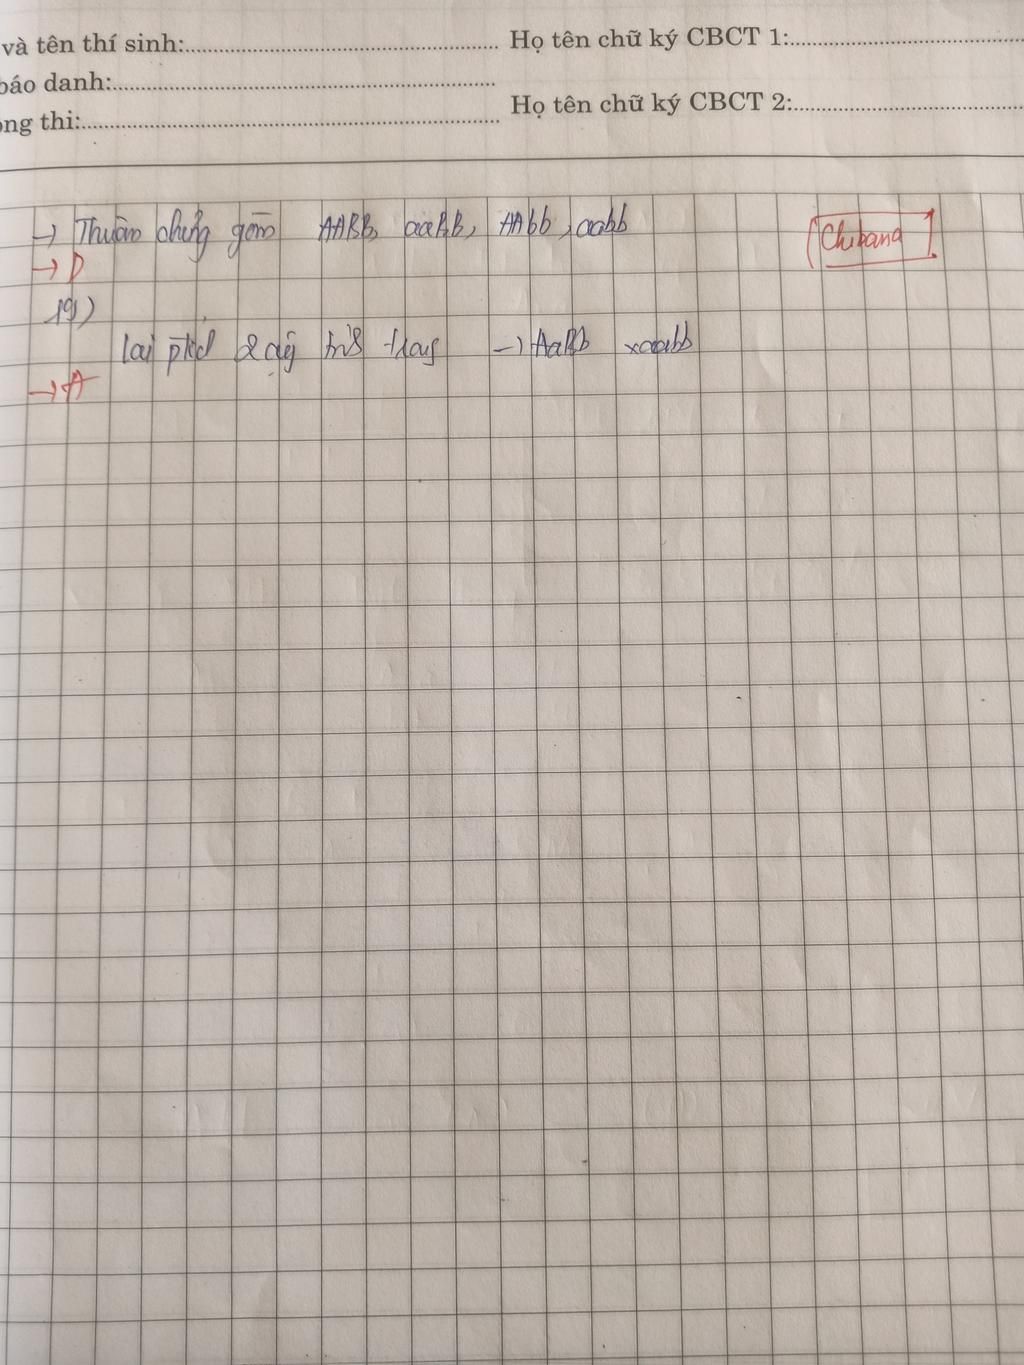 và tên thí sinh:
Họ tên chữ ký CBCT 1:
báo danh:
Họ tên chữ ký CBCT 2:
òng thi:
→ Thuần chủng gồm AABB, aaBB, AAbb, aabb
[Chibana]
→ D
19)
lai ptích 2 cặp → AaBb x aabb
→ A